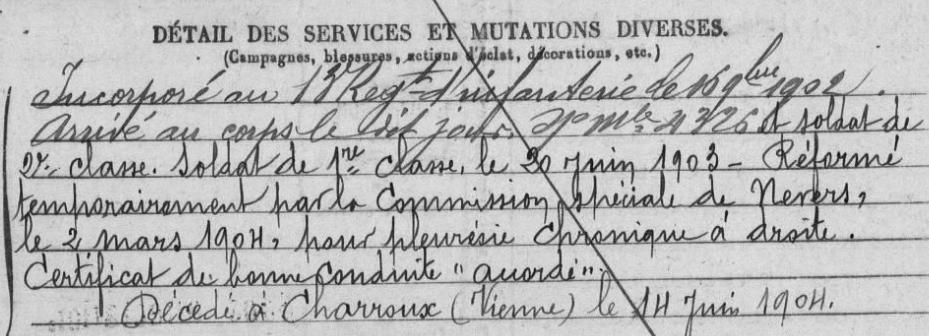 DÉTAIL DES SERVICES ET MUTATIONS DIVERSES.
(Campagnes, blessures, actions d'éclat, décorations, etc.)
Incorporé au 13e Régt d'infanterie le 16 9bre 1902.
Arrivé au corps le dit jour. No mle 4326 et soldat de
2e classe. Soldat de 1re classe, le 30 Juin 1903 - Réformé
temporairement par la Commission spéciale de Nevers,
le 2 mars 1904, pour pleurésie chronique à droite.
Certificat de bonne conduite "accordé".
Décédé à Charroux (Vienne) le 14 Juin 1904.